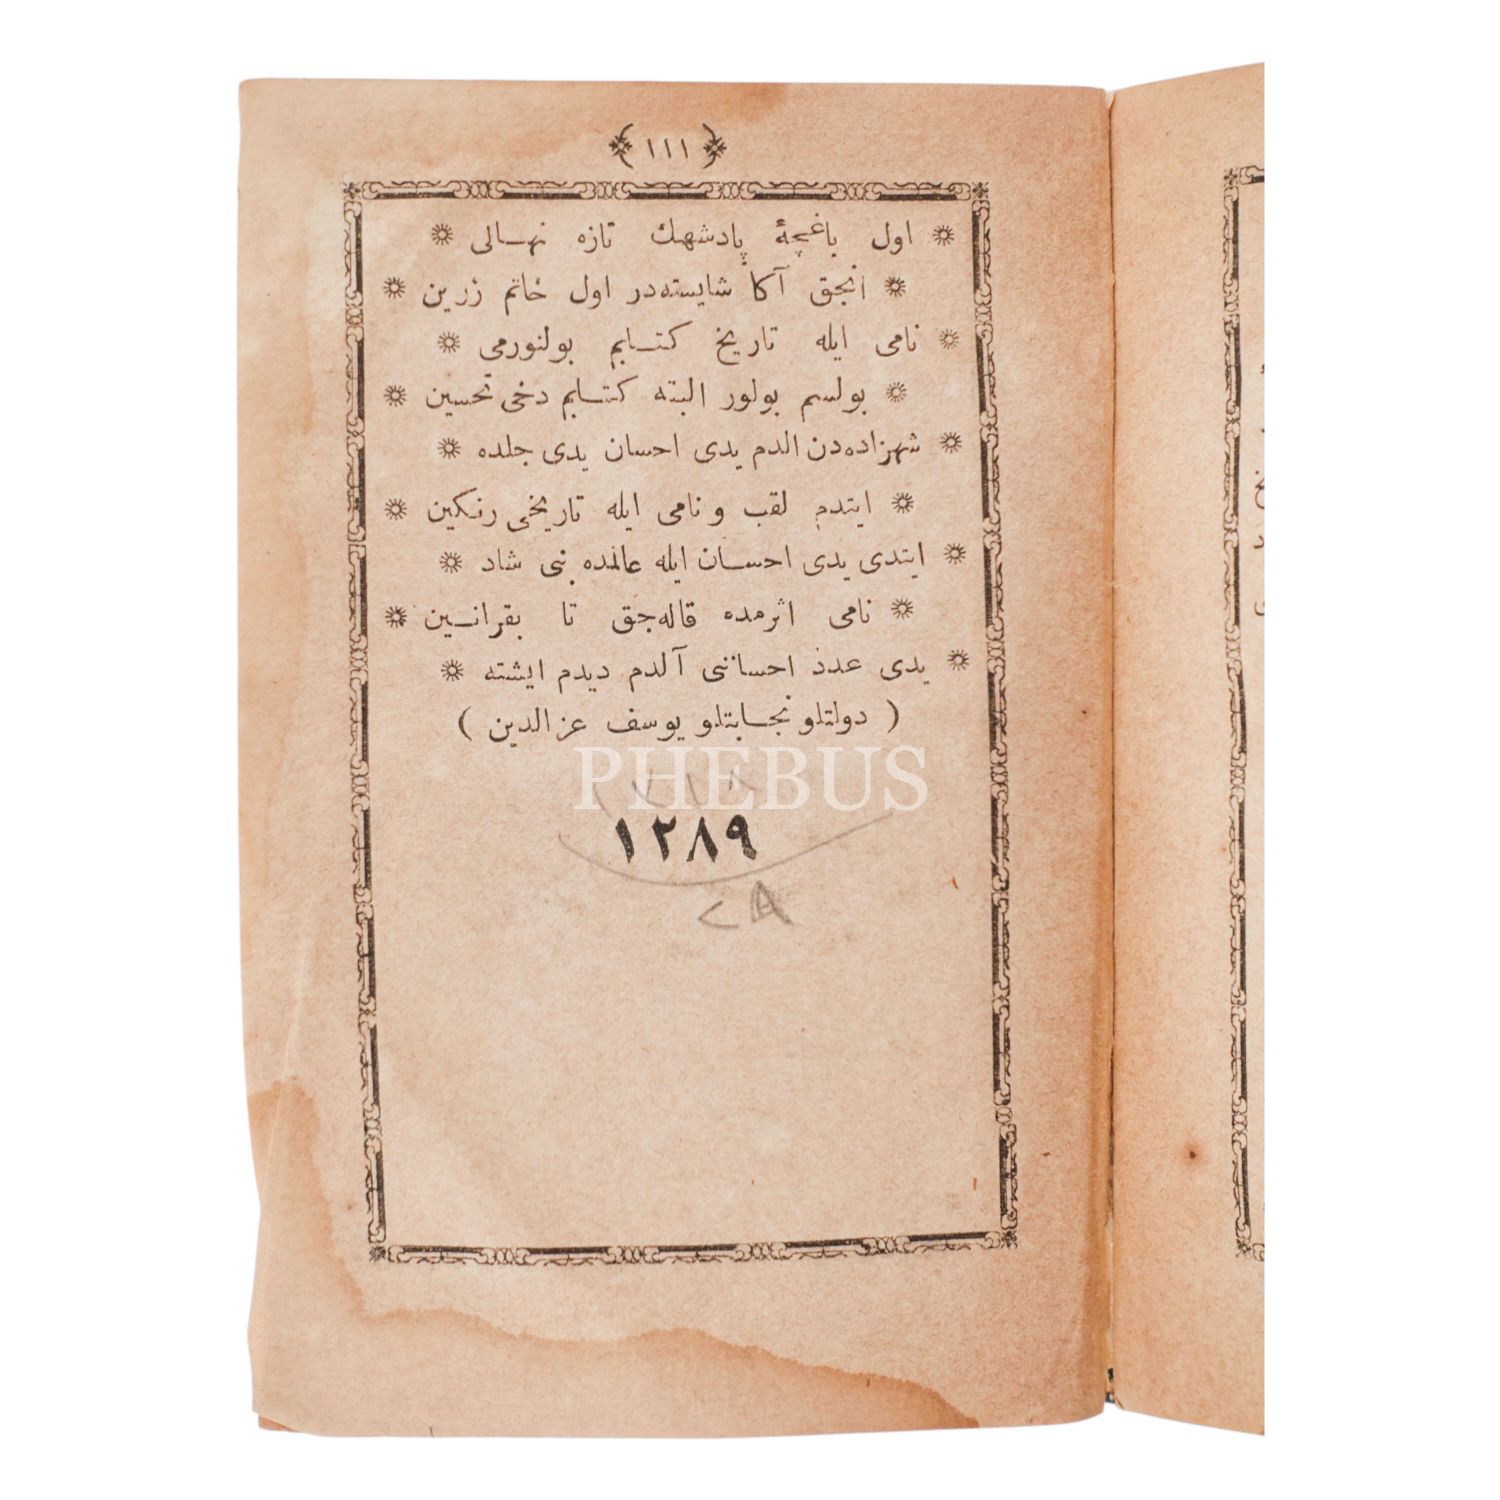 ﴿ ١١١ ﴾
اول باغچهٔ پادشهك تازه نهالی
انجق آكا شایسته‌در اول خاتم زرین
نامی ایله تاریخ كتابم بولنورمی
بولسم بولور البته كتابم دخی تحسین
شهزاده‌دن الدم یدی احسان یدی جلده
ایتدم لقب و نامی ایله تاریخی رنكین
ایتدی یدی احسان ایله عالمده بنی شاد
نامی اثرمده قاله‌جق تا بقرانسین
یدی عدد احساننی آلدم دیدم ایشته
( دولتلو نجابتلو یوسف عزالدین )
PHEBUS
١٢٨٩